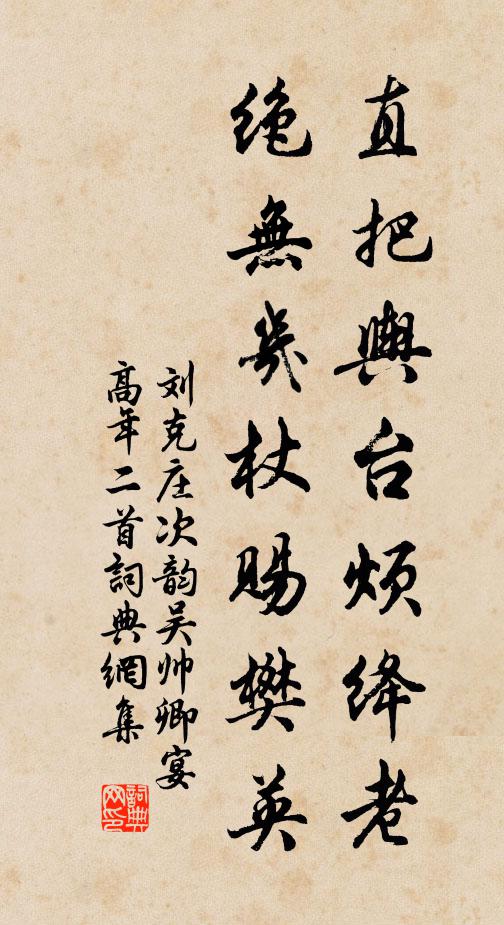 直把輿台煩绛老
绝無几杖賜樊英
刘克庄次韵吴帅卿宴
高年二首詞典網集
詞典网印